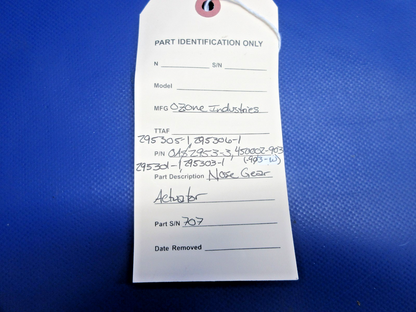 PART IDENTIFICATION ONLY
N S/N
Model
MFG Ozone Industries
TTAF
295305-1, 295306-1
P/N OAS2953-3, 450002-903
295301-1, 295303-1 (-903-W)
Part Description Nose Gear
Actuator
Part S/N 707
Date Removed